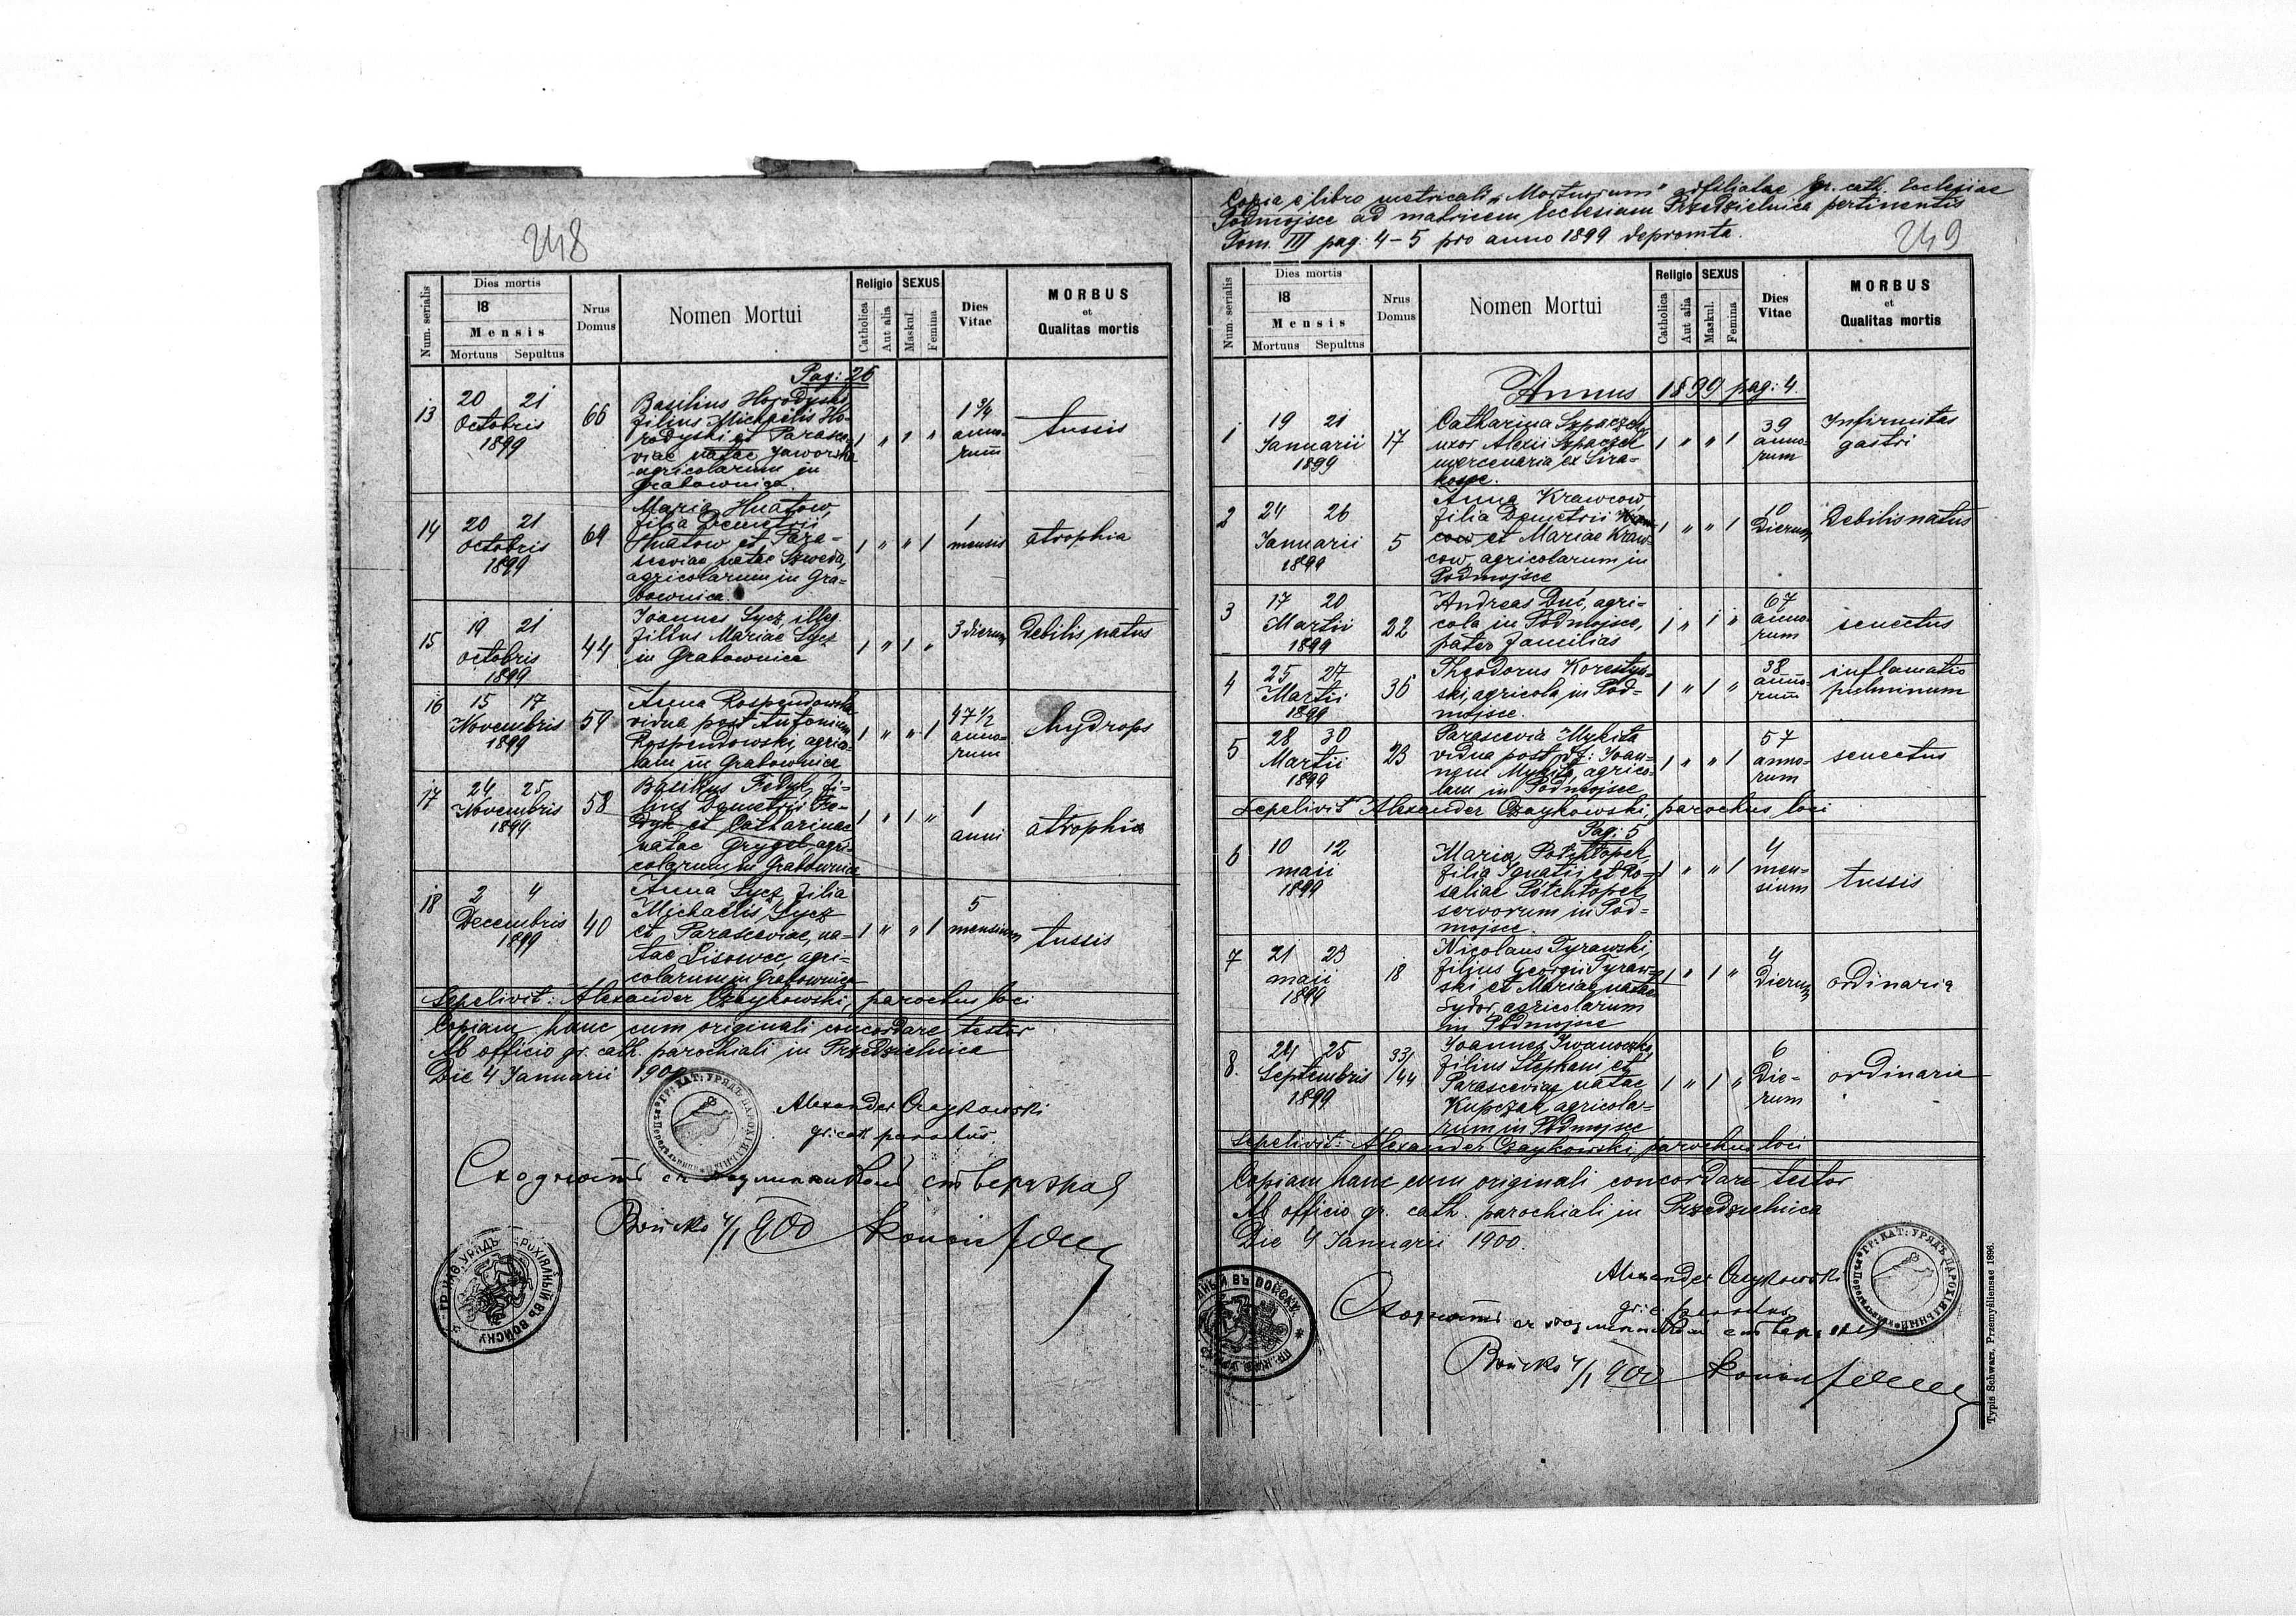 248
Num. serialis
Dies mortis
18
Mensis
Mortuus Sepultus
Nrus Domus
Nomen Mortui
Religio
Catholica
Aut alia
SEXUS
Maskul.
Femina
Dies Vitae
MORBUS
et
Qualitas mortis
Pag: 26
13 20 21 Octobris 1899 66
Basilius Horodyski
filius Michaelis Ho-
rodyski et Parasce-
viae natae Jaworska
agricolarum in
Grabownica.
1 " 1 " 1 3/4 anno-
rum
tussis
14 20 21 Octobris 1899 69
Maria Hnatow,
filia Demetrii
Hnatow et Para-
sceviae natae Szweda,
agricolarum in Gra-
bownica.
1 " " 1 1 mensis atrophia
15 19 21 Octobris 1899 44
Joannes Sycz, illeg.
filius Mariae Sycz
in Grabownica
1 " 1 " 3 dierum Debilis natus
16 15 17 Novembris 1899 59
Anna Rospendowska
vidua post Antonium
Rospendowski, agrico-
lam in Grabownica
1 " " 1 47 1/2 anno-
rum
hydrops
17 24 25 Novembris 1899 58
Basilius Fedyk, fi-
lius Demetrii Fe-
dyk et Catharinae
natae Grygel, agri-
colarum in Grabownica
1 " 1 " 1 anni atrophia
18 2 4 Decembris 1899 40
Anna Sycz, filia
Michaelis Sycz
et Parasceviae, na-
tae Lisowec, agri-
colarum in Grabownica
1 " " 1 5 mensium tussis
Sepelivit: Alexander Czaykowski, parochus loci
Copiam hanc cum originali concordare testor
Ab officio gr. cath. parochiali in Przedzielnica
Die 4 Januarii 1900
Alexander Czaykowski
gr. cath parochus.
ГР: КАТ: УРЯДЪ ПАРОХІЯЛЬНЫЙ
Войско 4/1 900
ПАРОХІЯЛНЫЙ ВЪ ВОЙСКУ
Copia e libro metricali "Mortuorum" adfiliatae gr. cath. Ecclesiae
Podmojsce ad matricem Ecclesiam Przedzielnica pertinentis
Tom. III pag. 4-5 pro anno 1899 depromta.
249
Num. serialis
Dies mortis
18
Mensis
Mortuus Sepultus
Nrus Domus
Nomen Mortui
Religio
Catholica
Aut alia
SEXUS
Maskul.
Femina
Dies Vitae
MORBUS
et
Qualitas mortis
Annus 1899 pag: 4.
1 19 21 Januarii 1899 17
Catharina Szpaczek
uxor Alexii Szpaczek
mercenaria ex Sira-
kosce.
1 " " 1 39 anno-
rum
Infirmitas
gastri
2 24 26 Januarii 1899 5
Anna Krawcow,
filia Demetrii Kraw-
cow et Mariae Kraw-
cow, agricolarum in
Podmojsce
1 " " 1 10 Dierum Debilis natus
3 17 20 Martii 1899 22
Andreas Duć, agri-
cola in Podmojsce,
pater familias
1 " 1 " 67 anno-
rum
senectus
4 25 27 Martii 1899 36
Theodorus Korostyń-
ski, agricola in Pod-
mojsce.
1 " 1 " 38 anno-
rum
inflamatio
pulminum
5 28 30 Martii 1899 23
Parascevia Mykita
vidua post df: Joan-
nem Mykita, agrico-
lam in Podmojsce
1 " " 1 57 anno-
rum
senectus
Sepelivit Alexander Czaykowski, parochus loci
Pag: 5
6 10 12 maii 1899
Maria
filia Ignatii et Ro-
saliae
servorum in Pod-
mojsce.
1 " " 1 4 men-
sium
tussis
7 21 23 maii 1899 18
Nicolaus Tyrawski,
filius Georgii Tyraw-
ski et Mariae natae
Sydor, agricolarum
in Podmojsce
1 " 1 " 4 dierum ordinaria
8. 24 25 Septembris 1899 33/44
Joannes
filius Stephani et
Parasceviae natae
Kupczak agricola-
rum in Podmojsce
1 " 1 " 6 Die-
rum
ordinaria
Sepelivit: Alexander Czaykowski, parochus loci
Copiam hanc cum originali concordare testor
Ab officio gr. cath. parochiali in Przedzielnica
Die 4 Januarii 1900.
Alexander Czaykowski
gr. c. parochus
ГР: КАТ: УРЯДЪ ПАРОХІЯЛЬНЫЙ
Войско 4/1 900
ВЪ ВОЙСКУ
Typis Schwarz. Przemyśliensae 1896.